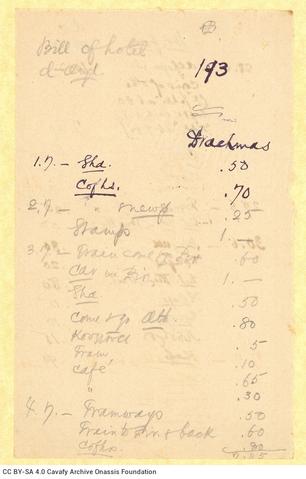 Bill of hotel
193
Drachmas
1.7. — Sha. .50
Coffs. .70
2.7. — " newsp .25
Stamps 1.—
3.7. — Train come & .60
Car in 1.—
Sha .50
Come & go Ath. .80
.5
Tram .10
Café .65
" .30
4.7. — Tramways .50
Train to & back .60
Coffs. .80
7.85
CC BY-SA 4.0 Cavafy Archive Onassis Foundation